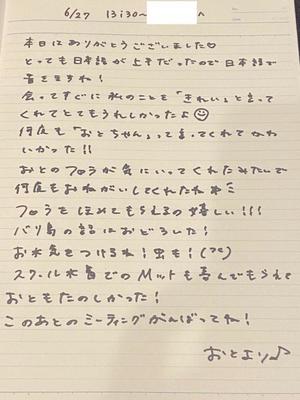 6/27 13:30〜 へ
本日はありがとうございました♡
とっても日本語が上手だったので日本語で
書きますね!
会ってすぐに私のことを「きれい」と言って
くれてとてもうれしかったよ☺
何度も「おとちゃん」って言ってくれてかわ
いかった!!
おとのフロラが気にいってくれたみたいで
何度もおねがいしてくれたね
フロラをほめてもらえるの嬉しい!!!
バリ島の話におどろいた!
お水気をつけるね!虫も!
スクール水着でのMットも喜んでもらえて
おともたのしかった!
このあとのミーティングがんばってね!
おとより♪